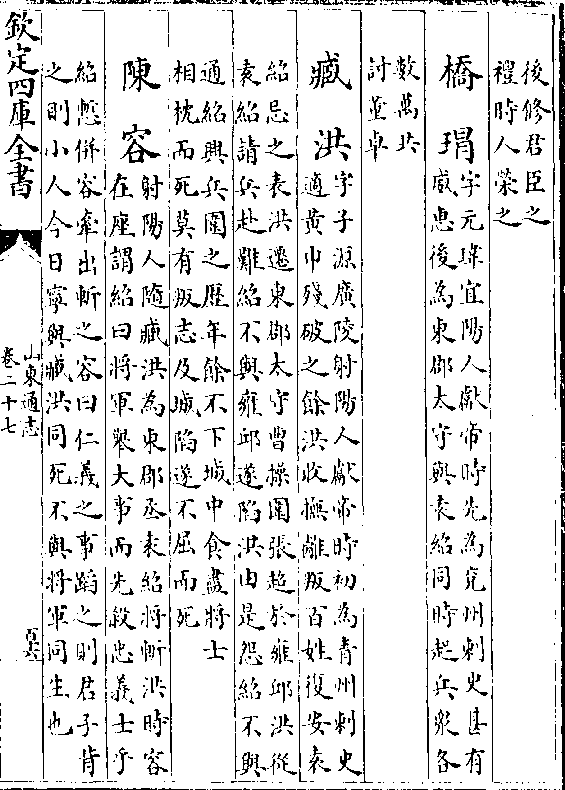 後修君臣之
禮時人榮之
橋瑁字元瑋宜陽人獻帝時先為兖州刺史甚有
威惠後為東郡太守與袁紹同時起兵衆各
數萬共
討董卓
臧洪字子源廣陵射陽人獻帝時初為青州刺史
適黄巾殘破之餘洪收撫離叛百姓復安袁
紹忌之表洪遷東郡太守曹操圍張超於雍邱洪從
袁紹請兵赴難紹不與雍邱遂陷洪由是怨紹不與
通紹興兵圍之歴年餘不下城中食盡將士
相枕而死莫有叛志及城陷遂不屈而死
陳容射陽人隨臧洪為東郡丞袁紹將斬洪時容
在座謂紹曰將軍舉大事而先殺忠義士乎
紹慙併容牽出斬之容曰仁義之事蹈之則君子背
之則小人今日寧與臧洪同死不與將軍同生也
欽定四庫全書
山東通志
卷二十七